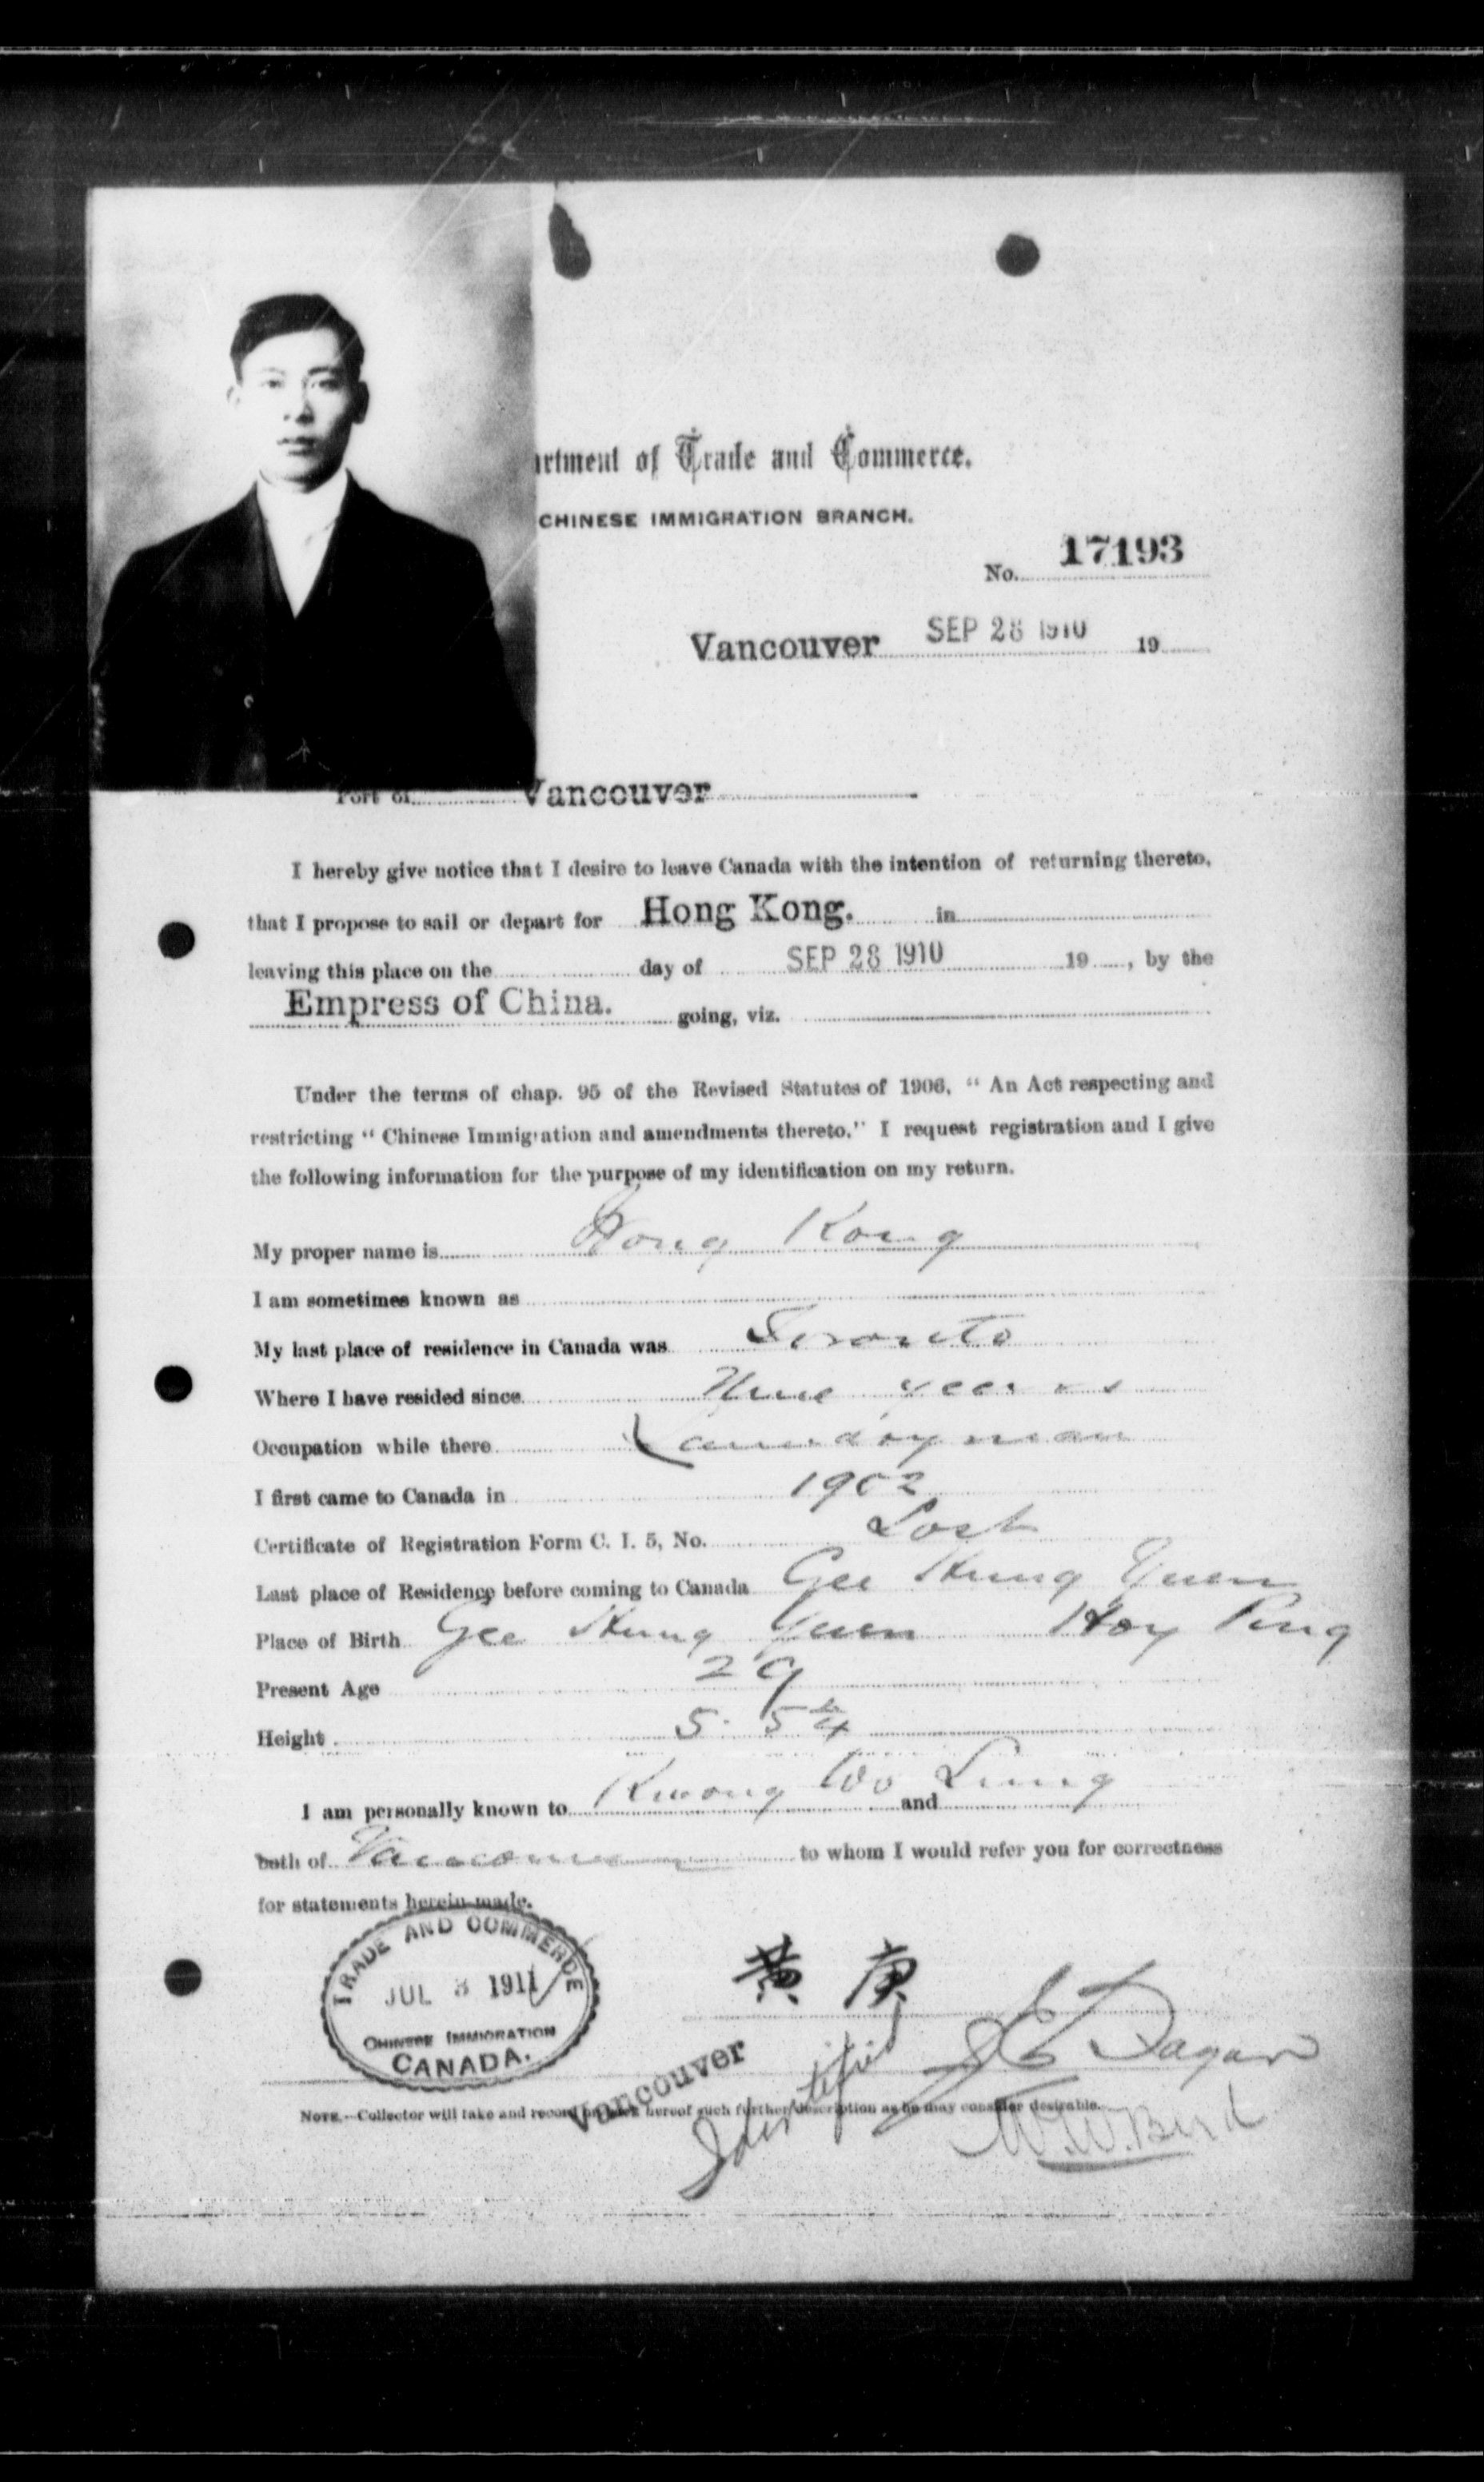 artment of Trade and Commerce.
CHINESE IMMIGRATION BRANCH.
No. 17193
Vancouver SEP 28 1910 19
Port of Vancouver
I hereby give notice that I desire to leave Canada with the intention of returning thereto,
that I propose to sail or depart for Hong Kong. in
leaving this place on the day of SEP 28 1910 19 , by the
Empress of China. going, viz.
Under the terms of chap. 95 of the Revised Statutes of 1906, " An Act respecting and
restricting " Chinese Immigration and amendments thereto." I request registration and I give
the following information for the purpose of my identification on my return.
My proper name is Hong Kong
I am sometimes known as
My last place of residence in Canada was Toronto
Where I have resided since years
Occupation while there Laundryman
I first came to Canada in 1902
Certificate of Registration Form C. I. 5, No. Lost
Last place of Residence before coming to Canada Gee Hung Yuen
Place of Birth Gee Hung Yuen Hoy Ping
Present Age 29
Height 5. 5
I am personally known to Kwong Wo Lung and
both of Vancouver to whom I would refer you for correctness
for statements herein made.
TRADE AND COMMERCE
JUL 3 1911
CHINESE IMMIGRATION
CANADA.
黄 庚
Vancouver
Identified
NOTE.—Collector will take and record on back hereof such further description as he may consider desirable.
W.W. Bird